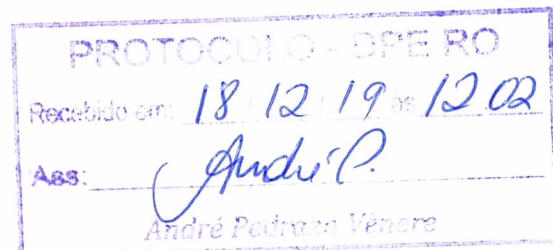 PROTOCOLO - DPE RO
Recebido em: 18 / 12 / 19 às 12 02
Ass: André P.
André Pedraza Vênere